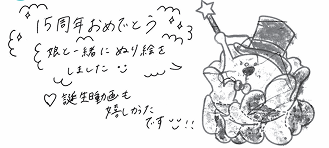 15周年おめでとう
娘と一緒にぬり絵を
しました
♡誕生日動画も
嬉しかった
です!!